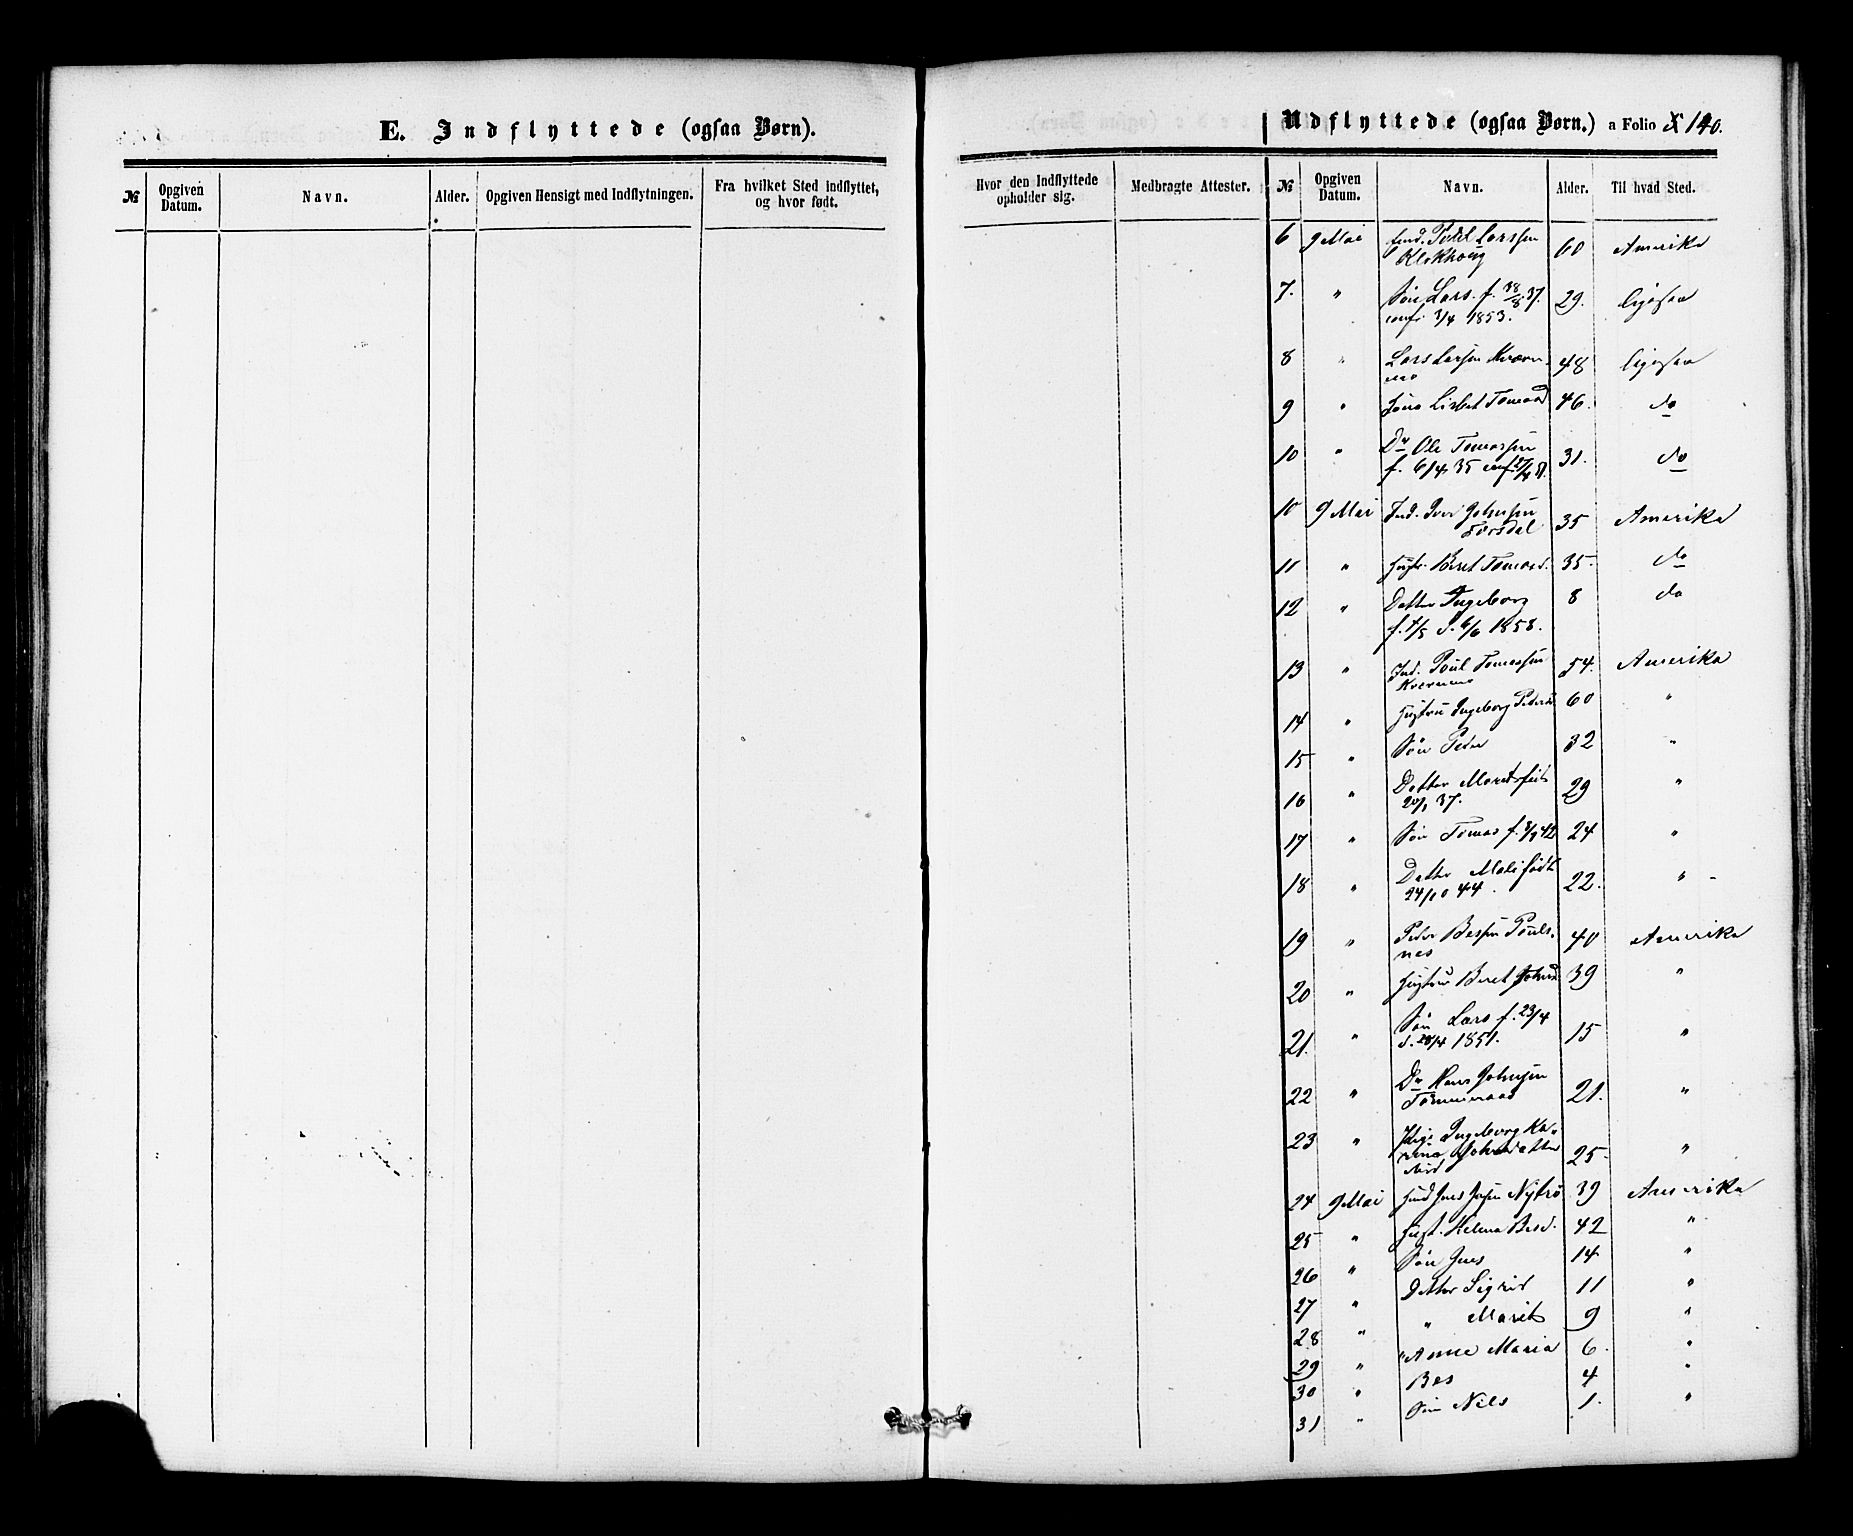 E. Indflyttede (ogsaa Børn).
№ Opgiven Datum. Navn. Alder. Opgiven Hensigt med Indflytningen. Fra hvilket Sted indflyttet, og hvor født.
Udflyttede (ogsaa Børn.) a Folio 140.
Hvor den Indflyttede opholder sig. Medbragte Attester. № Opgiven Datum. Navn. Alder. Til hvad Sted.
6 9 Mai Larssen 60 Amerika
Klokhoug
7. " Søn Lars. f. 37. 29. ligesaa
conf. 3/4 1853.
8 " Lars Larsen Kværn- 48 ligesaa
mo
9 " Lisbet Tomasd 46. do
10 " Ole Tomassen 31. do
f. 6/4 35
10 9 Mai Ind. Iver Johnsen 35 Amerika
11 " Beret Tomasd. 35. do
12 " Datter Ingeborg 8 do
f. 1/5 d. 6/6 1858.
13 " Ind. Poul Tomassen 54. Amerika
Kvernmo
14 " Hustru Ingeborg Pedersd 60 "
15 " Søn Peder 32 "
16 " Datter Marit født 29 "
20/1 37.
17 " Søn Tomas f. 42 24 "
18 " Datter Mali født 22. "
24/10 44.
19 " Peder Bersen Pouls- 40 Amerika
nes
20 " Hustru Beret Johnsd 39 "
21. " Søn Lars f. 23/4 15 "
d. 1851.
22 " Hans Johnsen 21. "
Tømmeraas
23 " Pige Ingeborg Ka- 25 "
rina Johnsdatter
24 9 Mai Jens Nytrø 39 Amerika
25 " Hust. Helena Besd. 42 "
26 " Søn Jens 14 "
27 " Datter Sigrid 11 "
28 " " Marit 9 "
29 " " Anne Maria 6. "
30 " Bes 4 "
31 " Søn Nils 1. "